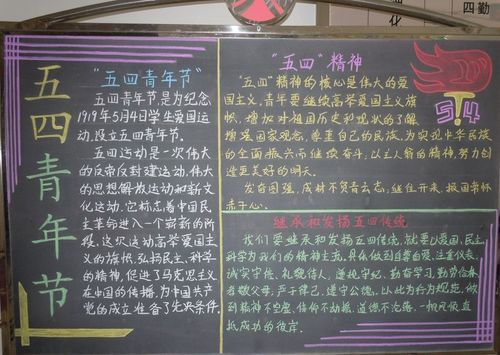 四勤
化
五四青年节
"五四青年节"
五四青年节是为纪念
1919年5月4日学生爱国运
动,设立五四青年节.
五四运动是一次伟大
的反帝反封建运动,伟大
的思想解放运动和新文
化运动.它标志着中国民
主革命进入一个崭新的阶
段,这次运动高举爱国主义
的旗帜,弘扬民主,科学
的精神,促进了马克思主义
在中国的传播,为中国共产
党的成立准备了先决条件.
"五四"精神
"五四"精神的核心是伟大的爱
国主义,青年要继续高举爱国主义旗
帜,增加对祖国历史和现状的了解
增强国家观念,尊重自己的民族,为实现中华民族
的全面振兴而继续奋斗,以主人翁的精神,努力创
造更美好的明天.
发奋图强,成材不负青云志,继往开来,报国常怀
赤子心.
5.4
继承和发扬五四传统
我们要继承和发扬五四传统,就要以爱国,民主,
科学为我们的精神主流.具体做到自尊自爱,注重仪表,
诚实守信,礼貌待人,遵规守纪,勤奋学习,勤劳俭朴
孝敬父母,严于律己,遵守公德,以此为行为规范,做
到精神不空虚,信仰不动摇,道德不沦落,一帆风顺直
抵成功的彼岸.